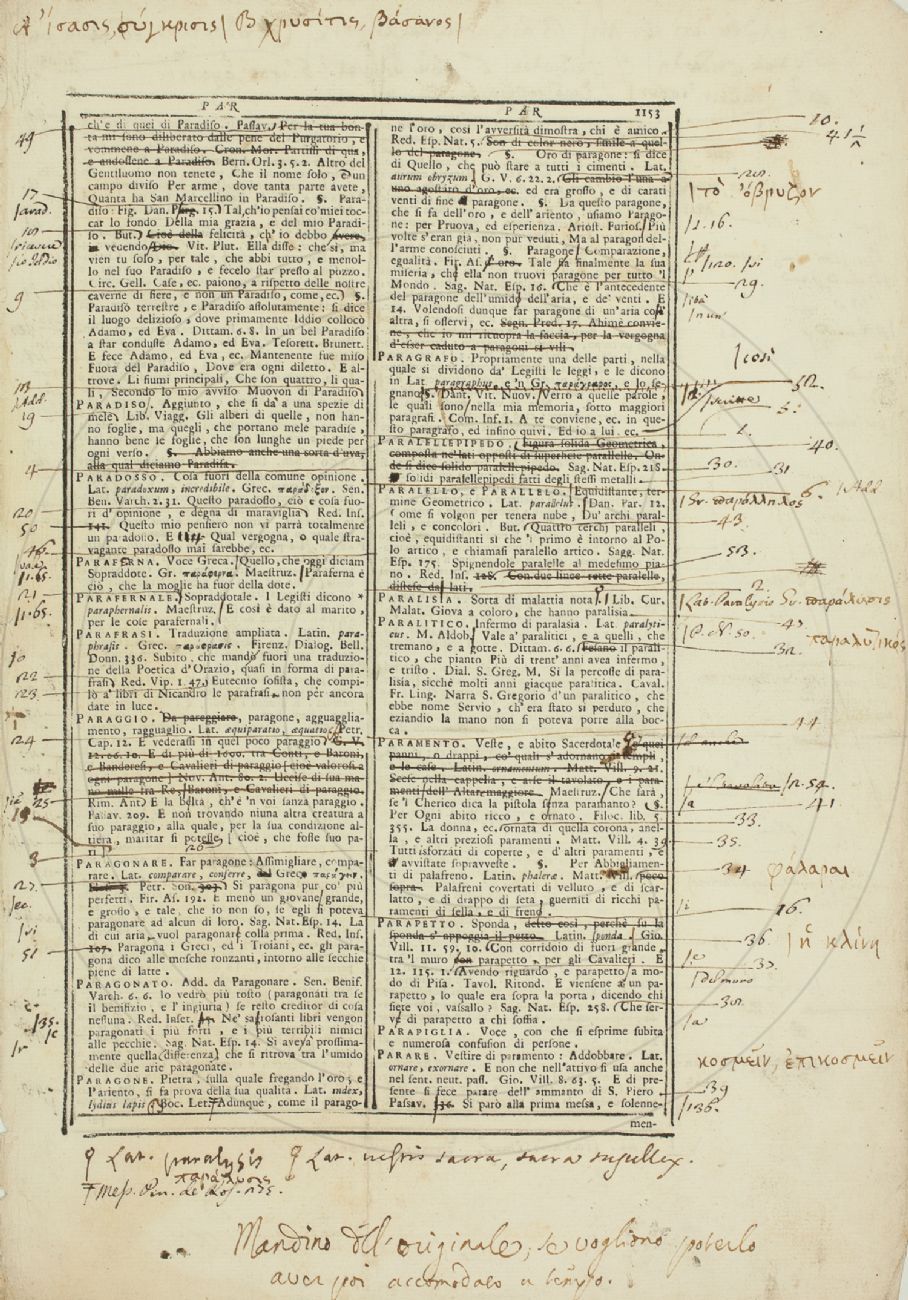 ἴσασις, σύγκρισις| B χρυσίτις, βάσανος|
PAR
PAR 1153
ch'e di quei di Paradiso. Passav. Per la tua bon-
ta mi sono diliberato dalle pene del Purgatorio, e
vommene a Paradiso. Cron. Mor. Partissi di qua,
e andossene a Paradiso. Bern. Orl. 3. 5. 2. Altro del
Gentiluomo non tenete, Che il nome solo, d'un
campo diviso Per arme, dove tanta parte avete,
Quanta ha San Marcellino in Paradiso. §. Para-
diso: Fig. Dan. Parg. 15. Tal, ch'io pensai co'miei toc-
car lo fondo Della mia grazia, e del mio Paradi-
so. But. Cioè della felicità, ch'io debbo avere,
vedendo Vit. Plut. Ella disse: che sì, ma
vien tu suso, per tale, che abbi tutto, e menol-
lo nel suo Paradiso, e fecelo star presso al pozzo.
Circ. Gell. Case, ec. paiono, a rispetto delle nostre
caverne di fiere, e non un Paradiso, come, ec. §.
Paradiso terrestre, e Paradiso assolutamente: si dice
il luogo delizioso, dove primamente Iddio collocò
Adamo, ed Eva. Dittam. 6. 8. In un bel Paradiso
a star condusse Adamo, ed Eva. Tesorett. Brunett.
E fece Adamo, ed Eva, ec. Mantenente fue miso
Fuora del Paradiso, Dove era ogni diletto. E al-
trove. Li fiumi principali, Che son quattro, li qua-
li, Secondo lo mio avviso Muovon di Paradiso
PARADISO. Aggiunto, che si dà a una spezie di
mele. Lib. Viagg. Gli alberi di quelle, non han-
no foglie, ma quegli, che portano mele paradise,
hanno bene le foglie, che son lunghe un piede per
ogni verso. §. Abbiamo anche una sorta d'uva,
alla qual diciamo Paradisa.
PARADOSSO. Cosa fuori della comune opinione.
Lat. paradoxum, incredibile. Grec. παράδοξον. Sen.
Ben. Varch. 2. 31. Questo paradosso, ciò è cosa fuo-
ri d'opinione, e degna di maraviglia. Red. Ins.
141. Questo mio pensiero non vi parrà totalmente
un paradosso. E Qual vergogna, o quale stra-
vagante paradosso mai sarebbe, ec.
PARAFERNA. Voce Greca. Quello, che oggi diciam
Sopraddore. Gr. παράφερνα. Maestruz. Paraferna è
ciò, che la moglie ha fuor della dote.
PARAFERNALE. Sopraddotale. I Legisti dicono
paraphernalis. Maestruz. E così è dato al marito,
per le cose parafernali.
PARAFRASI. Traduzione ampliata. Latin. para-
phrasis. Grec. παράφρασις. Firenz. Dialog. Bell.
Donn. 336. Subito, che mandò fuori una traduzio-
ne della Poetica d'Orazio, quasi in forma di para-
frasi. Red. Vip. 1. 47. Eutecnio sofista, che compi-
lò a' libri di Nicandro le parafrasi, non per ancora
date in luce.
PARAGGIO. Da pareggiare, paragone, agguaglia-
mento, ragguaglio. Lat. æquiparatio, æquatio. Petr.
Cap. 12. E vederassi in quel poco paraggio G. V.
12. 66. 10. E di più di 1600. tra Conti, e Baroni,
e Banderesi, e Cavalieri di paraggio (cioè valorosi a
ogni paragone) Nov. Ant. 80. 2. Uccise di sua ma-
no mille tra Re, Baroni, e Cavalieri di paraggio.
Rim. Ant. E la beltà, ch'è 'n voi sanza paraggio.
Passav. 209. E non trovando niuna altra creatura a
suo paraggio, alla quale, per la sua condizione al-
tiera, maritar si potesse, cioè, che fosse suo pa-
ri
PARAGONARE. Far paragone: Assimigliare, compa-
rare. Lat. comparare, conferre, Greco
Petr. Son. 303. Si paragona pur co' più
perfetti. Fir. As. 192. E meno un giovane grande,
e grosso, e tale, che io non so, se egli si poteva
paragonare ad alcun di loro. Sag. Nat. Esp. 14. La
di cui aria vuol paragonar colla prima. Red. Ins.
107. Paragona i Greci, ed i Troiani, ec. gli para-
gona dico alle mosche ronzanti, intorno alle secchie
piene di latte.
PARAGONATO. Add. da Paragonare. Sen. Benif.
Varch. 6. 6. Io vedrò più tosto (paragonati tra se
il benifizio, e l'ingiuria) se resto creditor di cosa
nessuna. Red. Inset. Ne' saporosanti libri vengon
paragonati i più forti, e i più terribili nimici
alle pecchie. Sag. Nat. Esp. 14. Si aveva prossima-
mente quella (differenza) che si ritrova tra l'umido
delle due arie paragonate.
PARAGONE. Pietra, sulla quale fregando l'oro, e
l'ariento, si fa prova della sua qualità. Lat. index,
lydius lapis. Boc. Let. Adunque, come il parago-
ne l'oro, così l'avversità dimostra, chi è amico.
Red. Esp. Nat. 5. Son di color nero, simile a quel-
lo del paragone. §. Oro di paragone: si dice
di Quello, che può stare a tutti i cimenti. Lat.
aurum obryzum. G. V. 6. 22. 2. Gli cambiò l'una a
uno agostaro d'oro, ec. ed era grosso, e di carati
venti di fine paragone. §. Da questo paragone,
che si fa dell'oro, e dell'ariento, usiamo Parago-
ne: per Pruova, ed esperienza. Ariost. Furios. Più
volte s'eran già, non pur veduti, Ma al paragon del-
l'arme conosciuti. §. Paragone: Comparazione,
egualità. Fir. As. Tale fia finalmente la sua
miseria, che ella non truovi paragone per tutto 'l
Mondo. Sag. Nat. Esp. 16. Che è l'antecedente
del paragone dell'umido dell'aria, e de' venti. E
14. Volendosi dunque far paragone di un'aria con
altra, si osservi, ec. Segn. Pred. 17. Ahimè convie-
ne, che io mi ricuopra la faccia, per la vergogna
d'esser caduto a paragoni sì vili.
PARAGRAFO. Propriamente una delle parti, nella
quale si dividono da' Legisti le leggi, e le dicono
in Lat. paragraphus, e 'n Gr. παράγραφος, e lo se-
gnano §. Dant. Vit. Nuov. Verrò a quelle parole,
le quali sono nella mia memoria, sotto maggiori
paragrafi. Com. Inf. 1. A te conviene, ec. in que-
sto paragrafo, ed infino quivi. Ed io a lui, ec.
PARALELLEPIPEDO. Figura solida Geometrica,
composta ne' lati opposti di superficie parallele. On-
de si dice solido paralellepipedo. Sag. Nat. Esp. 218.
solidi paralellepipedi fatti degli stessi metalli.
PARALELLO, e PARALLELO. Equidistante, ter-
mine Geometrico. Lat. paralelus. Dan. Par. 12.
Come si volgon per tenera nube, Du' archi paral-
leli, e concolori. But. Quattro cerchi paralleli,
cioè, equidistanti sì che 'l primo è intorno al Po-
lo artico, e chiamasi paralello artico. Sagg. Nat.
Esp. 175. Spignendole paralelle al medesimo pia-
no. Red. Ins. 128. Con due linee rette paralelle,
distese da' lati.
PARALISIA. Sorta di malattia nota. Lib. Cur.
Malat. Giova a coloro, che hanno paralisia.
PARALITICO. Infermo di paralasia. Lat. paralyti-
cus. M. Aldob. Vale a' paralitici, e a quelli, che
tremano, e a gotte. Dittam. 6. 6. il parali-
tico, che pianto Più di trent'anni avea infermo,
e tristo. Dial. S. Greg. M. Si la percosse di para-
lisia, sicchè molti anni giacque paralitica. Caval.
Fr. Ling. Narra S. Gregorio d'un paralitico, che
ebbe nome Servio, ch'era stato sì perduto, che
eziandio la mano non si poteva porre alla boc-
ca.
PARAMENTO. Veste, e abito Sacerdotale O quei
panni, o drappi, co' quali s'adornano i templi,
e le case. Latin. ornamentum. Matt. Vill. 9. 21.
Scese nella cappella, e ivi il tavolato, e i para-
menti dell'Altare maggiore. Maestruz. Che sarà,
se 'l Cherico dica la pistola senza paramanto? §.
Per Ogni abito ricco, e ornato. Filoc. lib. 5.
355. La donna, ec. ornata di quella corona, anel-
la, e altri preziosi paramenti. Matt. Vill. 4. 39
Tutti isforzati di coperte, e d'altri paramenti, e
d'avvistate sopravveste. §. Per Abbigliamen-
ti di palafreno. Latin. phaleræ. Matt. Vill. poco
sopra. Palafreni covertati di velluto, e di scar-
latto, e di drappo di seta, guerniti di ricchi pa-
ramenti di sella, e di freno.
PARAPETTO. Sponda, detto così, perchè su la
sponda s'appoggia il petto. Latin. sponda. Gio.
Vill. 11. 59. 10. Con corridoio di fuori grande
tra 'l muro con parapetto, per gli Cavalieri. E
12. 115. 1. Avendo riguardo, e parapetto a mo-
do di Pisa. Tavol. Ritond. E viensene a un pa-
rapetto, lo quale era sopra la porta, dicendo chi
siete voi, vassallo? Sag. Nat. Esp. 258. Che ser-
ve di parapetto a chi soffia.
PARAPIGLIA. Voce, con che si esprime subita
e numerosa confusion di persone.
PARARE. Vestire di paramento: Addobbare. Lat.
ornare, exornare. E non che nell'attivo si usa anche
nel sent. neut. pass. Gio. Vill. 8. 63. 5. E di pre-
sente si fece parare dell'ammanto di S. Piero.
Passav. 136. Si parò alla prima messa, e solenne-
men-
49
17
9
19
4
20
50
46.
11.65.
21
11.65.
22
23
24
25
3
27
51
135.
10.
41
|τὸ ὄβρυζον
1.16.
29.
|così
52.
40.
30. 31
| Gr. παράλληλος 6. |Add
43.
53.
|Lat. Paralysis Gr. παράλυσις
παραλυτικὸς
44
41.
33.
35.
34 φάλαρα
16.
36. |ἡ κλίνη
|del muro
κοσμεῖν, ἐπικοσμεῖν
39
|136.
Lat. paralysis Lat. vestis sacra, sacra supellex.
παράλυσις
Mandino dell'originale, se vogliono poterlo
aver poi accomodato a tempo.